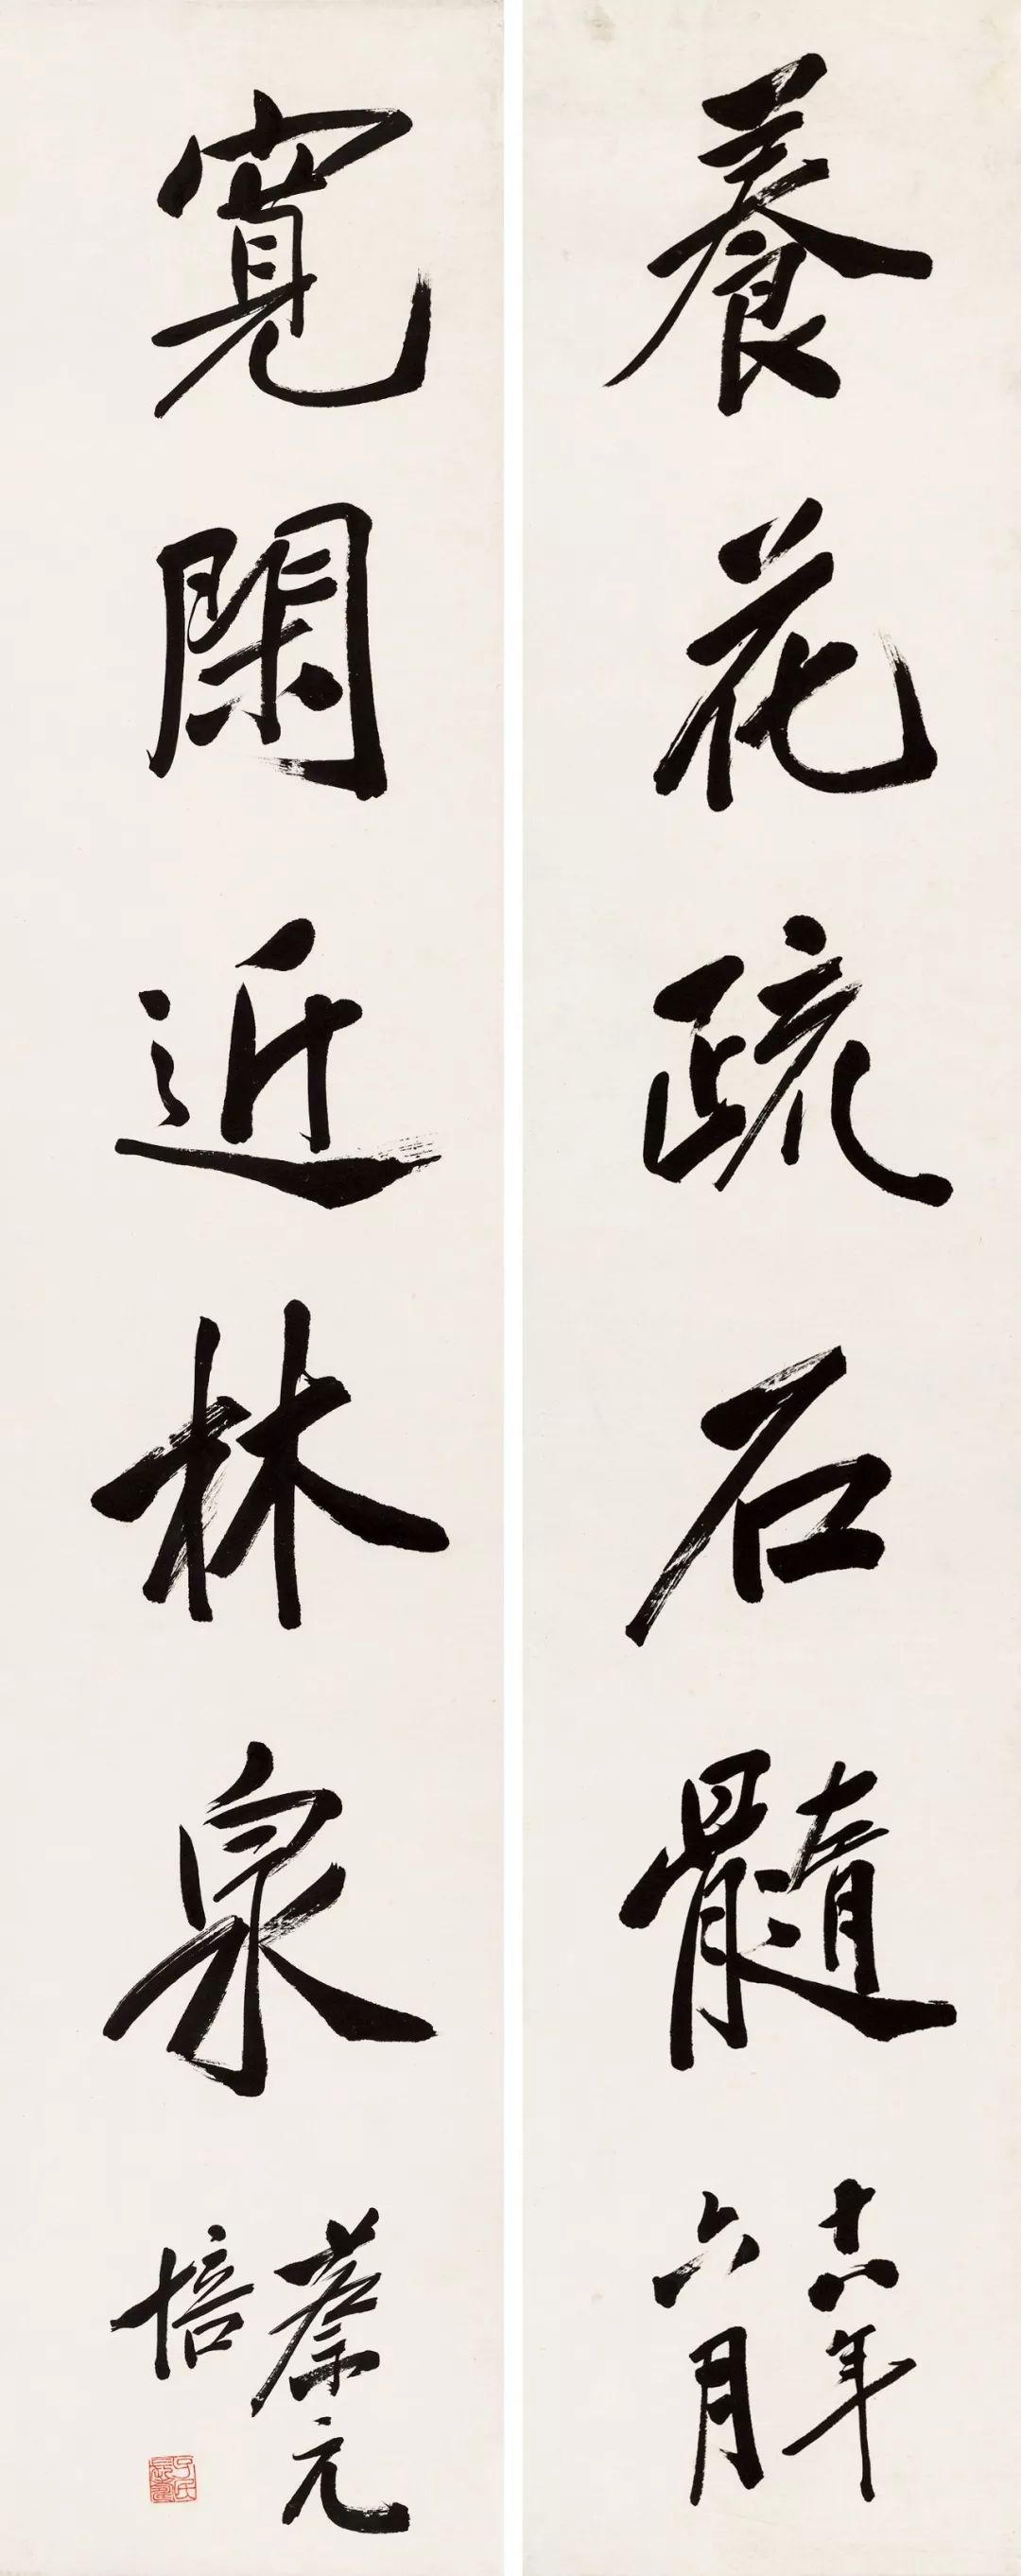 養花疏石髓
十六年
六月
寬閑近林泉
蔡元
培